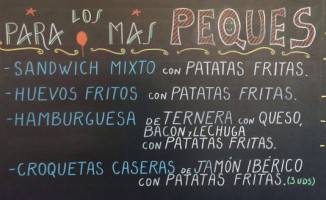 PARA LOS MAS PEQUES
-SANDWICH MIXTO CON PATATAS FRITAS.
-HUEVOS FRITOS CON PATATAS FRITAS.
-HAMBURGUESA DE TERNERA CON QUESO,
BACON Y LECHUGA
CON PATATAS FRITAS.
-CROQUETAS CASERAS DE JAMÓN IBÉRICO
CON PATATAS FRITAS. (5 UDS)